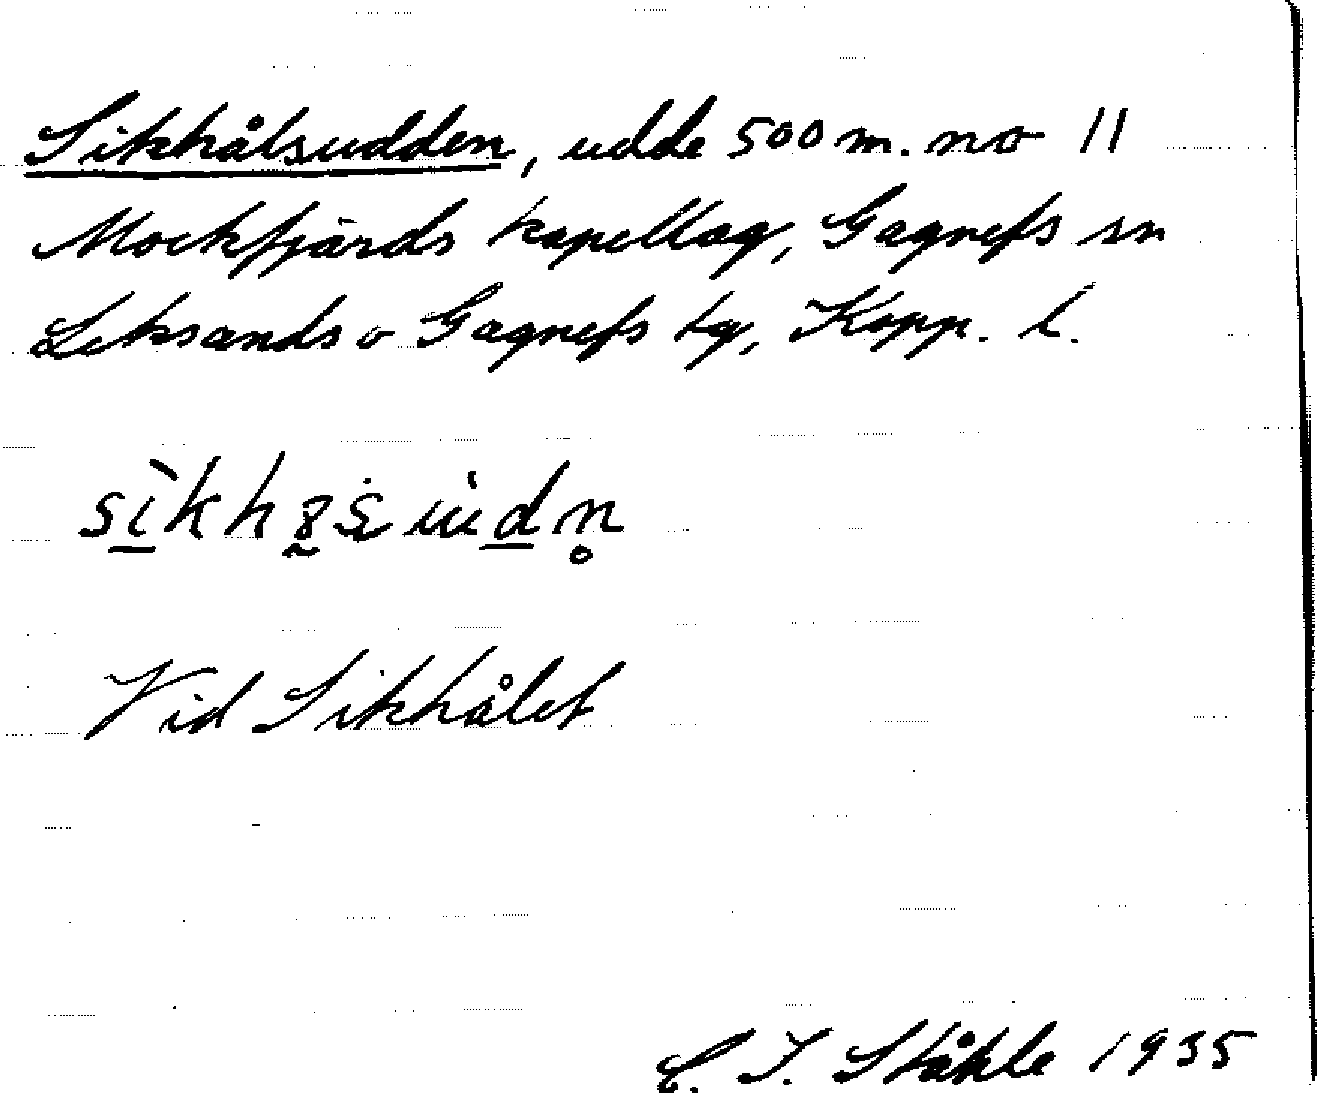 Sikhålsudden, udde 500 m. no 11
Mockfjärds kapellag, Gagnefs sn
Leksands o Gagnefs tg, Kopp. l.
Vid Sikhålet
C. I. Ståhle 1935